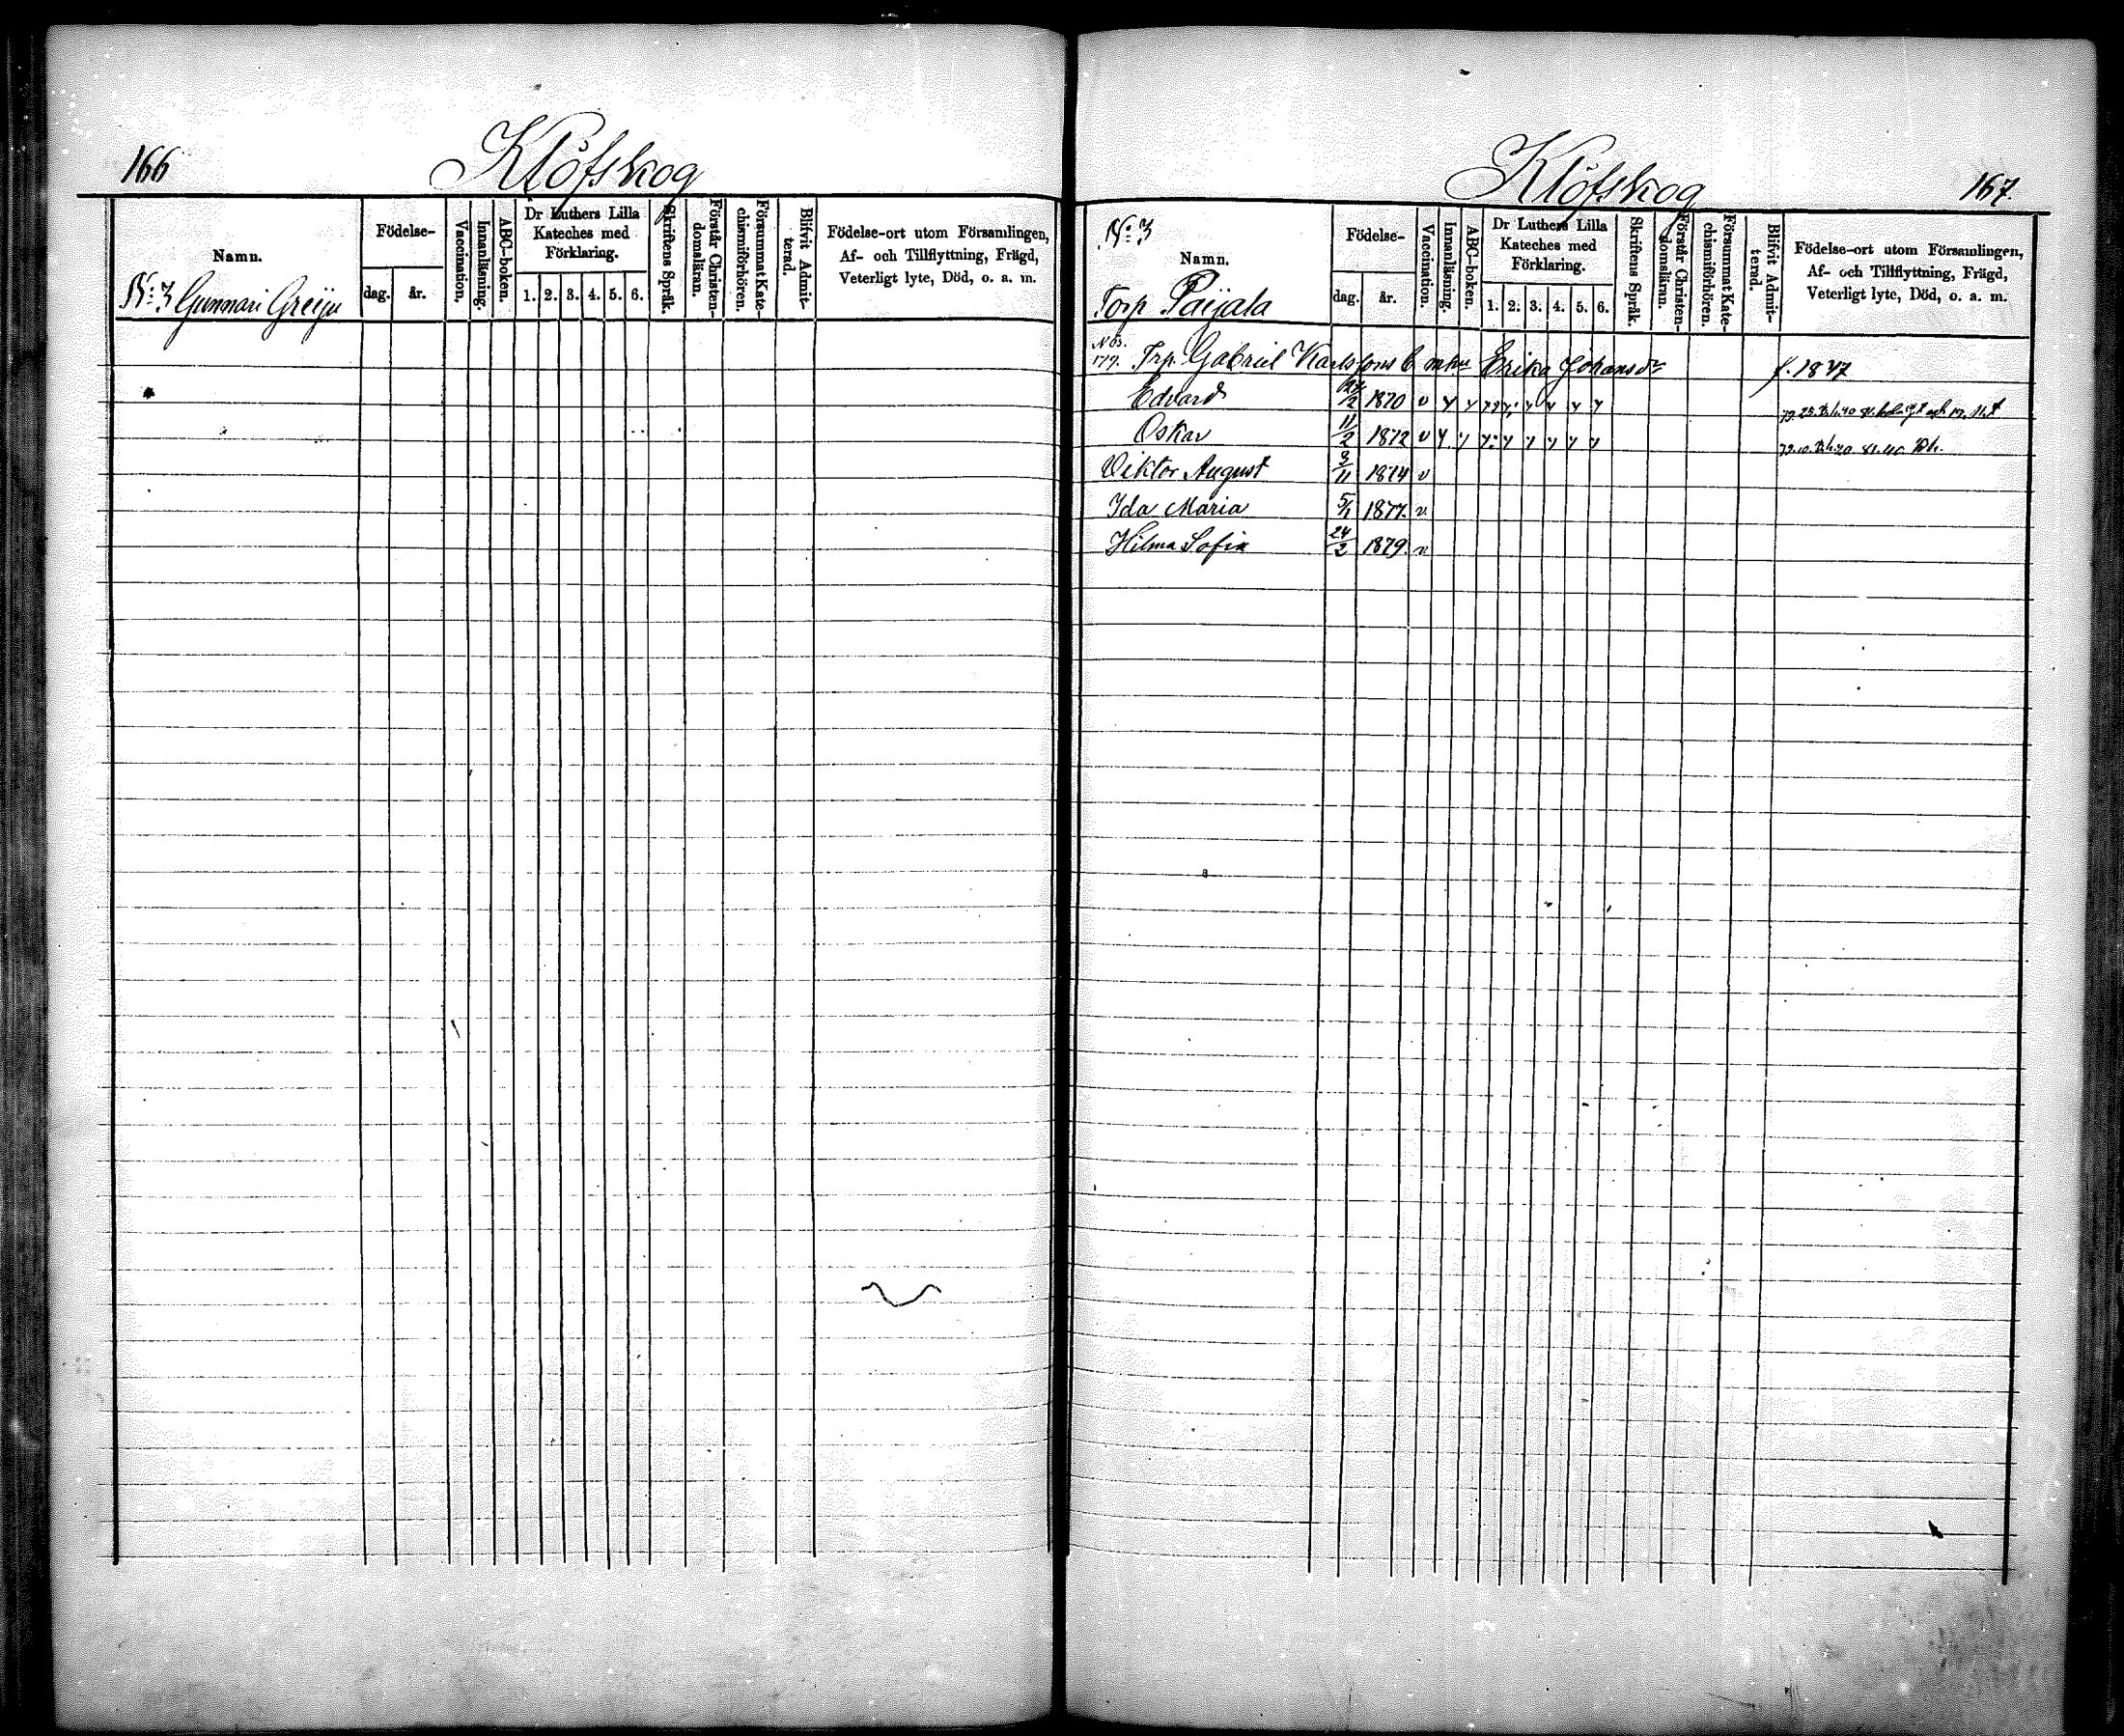 166
Klöfskog
Namn.
Födelse-
dag.
år.
Vaccination.
Innanläsning.
ABC-boken.
Dr Luthers Lilla
Kateches med
Förklaring.
1. 2. 3. 4. 5. 6.
Skriftens Språk.
Förstår Christen-
domsläran.
Försummat Kate-
chismiförhören.
Blifvit Admit-
terad.
Födelse-ort utom Församlingen,
Af- och Tillflyttning, Frägd,
Veterligt lyte, Död, o. a. m.
N:3 Gunnari
Klöfskog
167.
N:3
Namn.
Torp Paijala
Födelse-
dag.
år.
Vaccination.
Innanläsning.
ABC-boken.
Dr Luthers Lilla
Kateches med
Förklaring.
1. 2. 3. 4. 5. 6.
Skriftens Språk.
Förstår Christen-
domsläran.
Försummat Kate-
chismiförhören.
Blifvit Admit-
terad.
Födelse-ort utom Församlingen,
Af- och Tillflyttning, Frägd,
Veterligt lyte, Död, o. a. m.
Trp. Gabriel Karlssons Erika Johansdr f. 1847
Edvard 1870 v
Oskar 11/2 1872 v
Viktor August 9/11 1874 v
Ida Maria 5/1 1877. v.
Hilma Sofia 24/2 1879. v